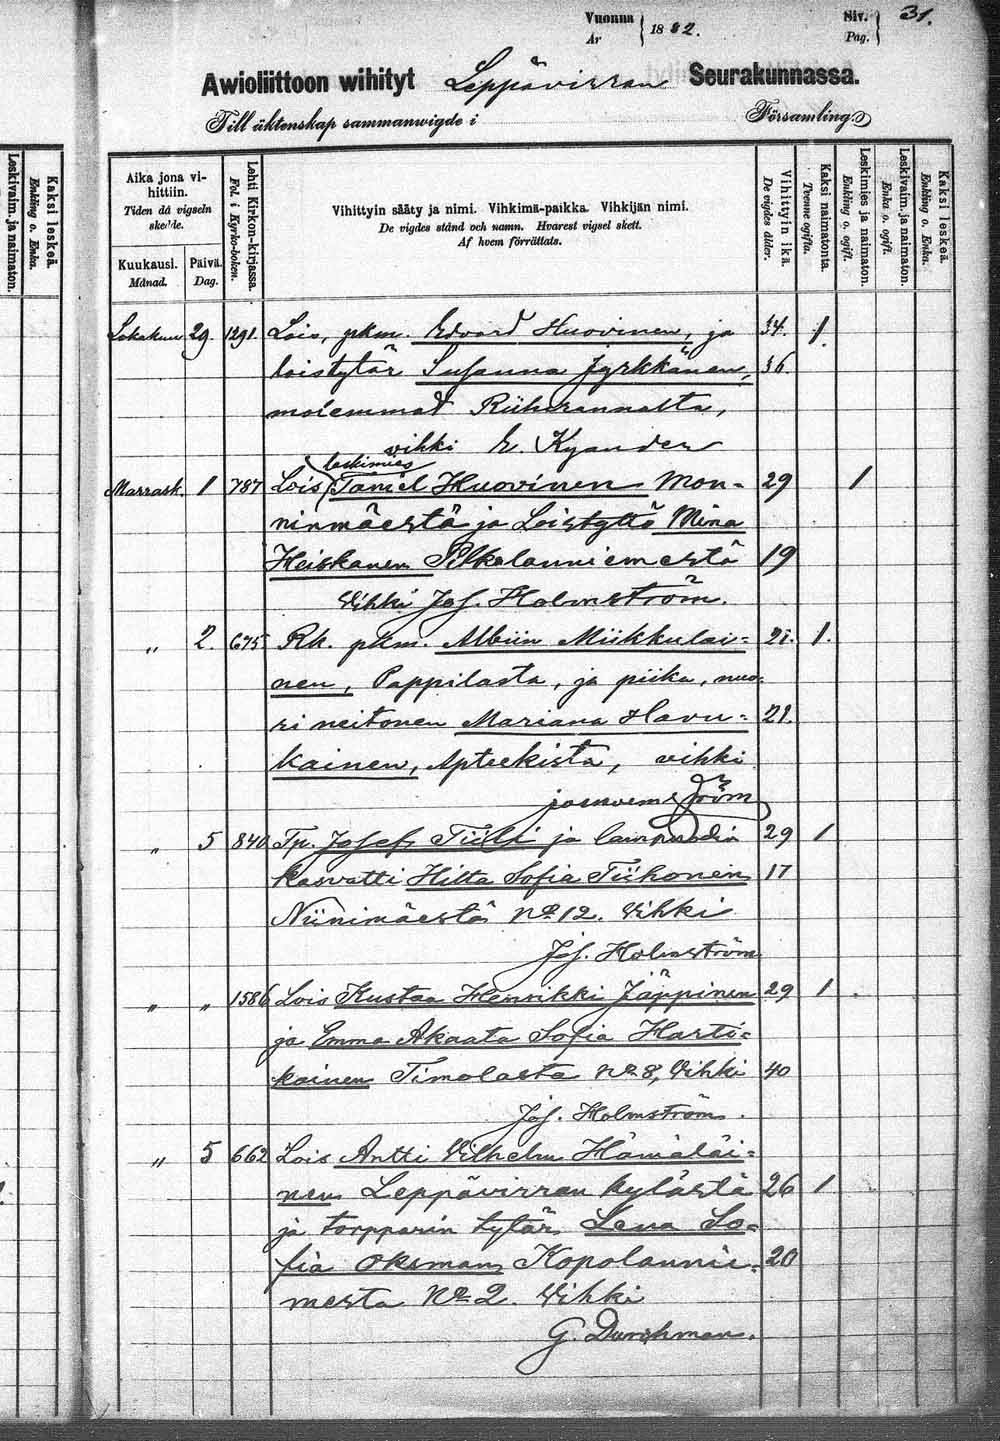 Vuonna
Ar
1882.
Siv.
Pag.
31.
Awioliittoon wihityt Leppävirran Seurakunnassa.
Till äktenskap sammanwigde i Församling
Leskivaim. ja naimaton.
Kaksi leskeä.
Enkling o. Enka.
Aika jona vi-
hittiin.
Tiden då vigseln
skedde.
Kuukausi.
Månad.
Päivä.
Dag.
Lehti Kirkon-kirjassa.
Fol. i Kyrko-boken.
Vihittyin sääty ja nimi. Vihkimä-paikka. Vihkijän nimi.
De vigdes stånd och namn. Hvarest vigsel skett.
Af hvem förrättats.
Vihittyin ikä.
De vigdes ålder.
Kaksi naimatonta.
Tvenne ogifta.
Leskimies ja naimaton.
Enkling o. ogift.
Leskivaim. ja naimaton.
Enka o. ogift.
Kaksi leskeä.
Enkling o. Enka.
Lokakuu 29. 1291. Lois, pkm. Edvard Huovinen, ja 34. 1.
loistytär Susanna Jyrkkänen, 36.
molemmat Riihirannalta,
vihki E. Kyander
leskimies
Marrask. 1 787 Lois Taniel Huovinen Mon- 29 1
ninmäestä ja Loistyttö Mina
Heiskanen Pilkalanniemestä 19
Vihki Jos. Holmström.
" 2. 675 Rk. pkm. Albiin Miikkulai- 21. 1.
nen, Pappilasta, ja piika, nuo-
ri neitonen Mariana Havu- 21.
kainen, Apteekista, vihki
" 5 840 Tp. Josef Tiilpi ja lampuodin 29 1
kasvatti Hilta Sofia Tiihonen 17
Niinimäestä No 12. Vihki
Jos. Holmström
" " 1586 Lois Kustaa Henrikki Jäppinen 29 1
ja Emma Akaata Sofia Harti-
kainen Timolasta No 8, Vihki 40
Jos. Holmström.
" 5 662 Lois Antti Vilhelm Hämäläi-
nen Leppävirran kylästä 26 1
ja torpparin tytär Lena So-
fia Oksman Kopolannie- 20
mesta No 2. Vihki
G. Dunshman.